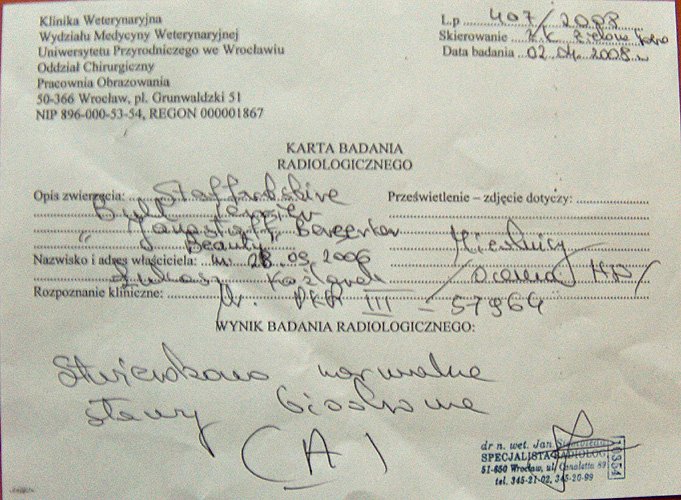 Klinika Weterynaryjna
Wydziału Medycyny Weterynaryjnej
Uniwersytetu Przyrodniczego we Wrocławiu
Oddział Chirurgiczny
Pracownia Obrazowania
50-366 Wrocław, pl. Grunwaldzki 51
NIP 896-000-53-54, REGON 000001867
L.p 407/2008
Skierowanie Z.K. Zielona Góra
Data badania 02.04.2008
KARTA BADANIA
RADIOLOGICZNEGO
Opis zwierzęcia: Staffordshire
Bull Terrier
"Janastaff Beauty"
Prześwietlenie – zdjęcie dotyczy:
Miednicy
/ocena HD/
Nazwisko i adres właściciela: ur. 28.09.2006
Łukasz
Rozpoznanie kliniczne: Nr. PKR III - 57964
WYNIK BADANIA RADIOLOGICZNEGO:
Stwierdzono normalne
stawy biodrowe
(A)
dr n. wet. Jan
SPECJALISTA RADIOLOG
51-650 Wrocław, ul. Canaletta 89
tel. 345-21-02, 345-20-99
10354